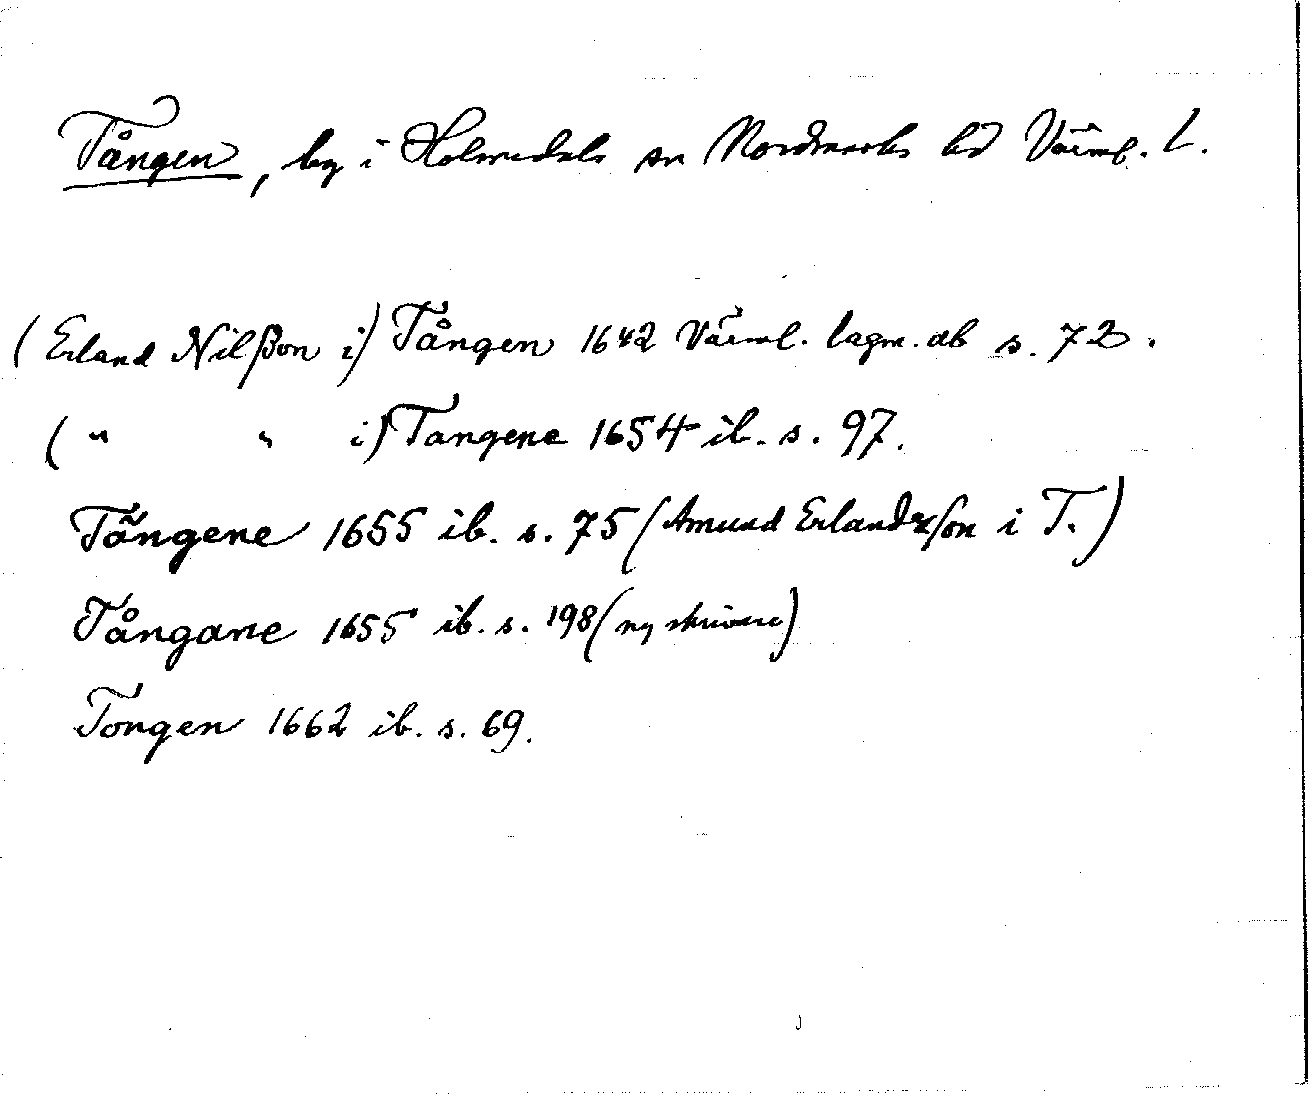 Tången, by i Holmedals sn Nordmarks hd Värml. l.
(Erland Nilßon i) Tången 1642 Värml. lagm. db s. 72.
( " " i) Tangene 1654 ib. s. 97.
Tångene 1655 ib. s. 75 (Amund Erlandzson i T.)
Tångane 1655 ib. s. 198 (ny skrivare)
Tongen 1662 ib. s. 69.